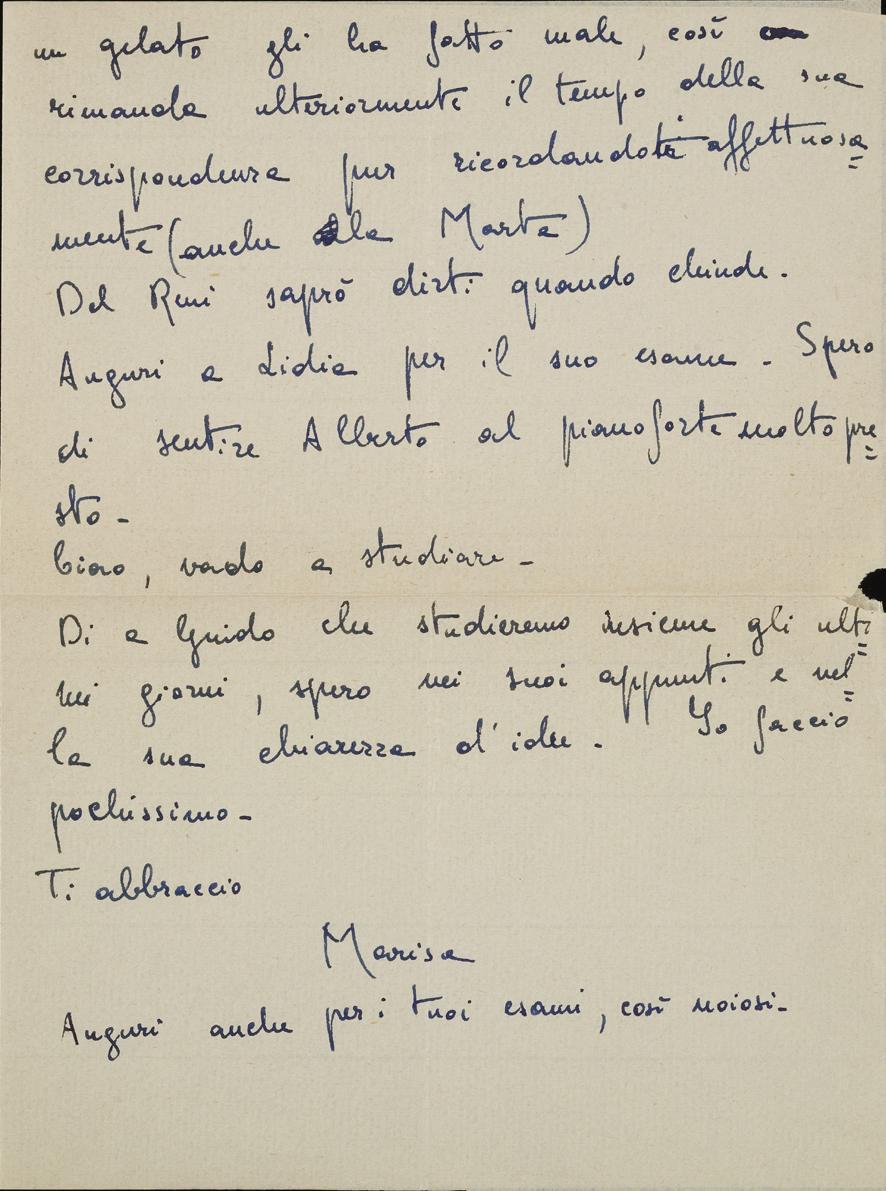 un gelato gli ha fatto male, così
rimanda ulteriormente il tempo della sua
corrispondenza pur ricordandoti affettuosa=
mente (anche la Marta)
Del Reni saprò dirti quando chiude.
Auguri a Lidia per il suo esame - Spero
di sentire Alberto al pianoforte molto pre=
sto -
Ciao, vado a studiare -
Di a Guido che studieremo insieme gli ulti=
mi giorni, spero nei suoi appunti e nel=
la sua chiarezza d'idee. Io faccio
pochissimo -
Ti abbraccio
Marisa
Auguri anche per i tuoi esami, così noiosi -